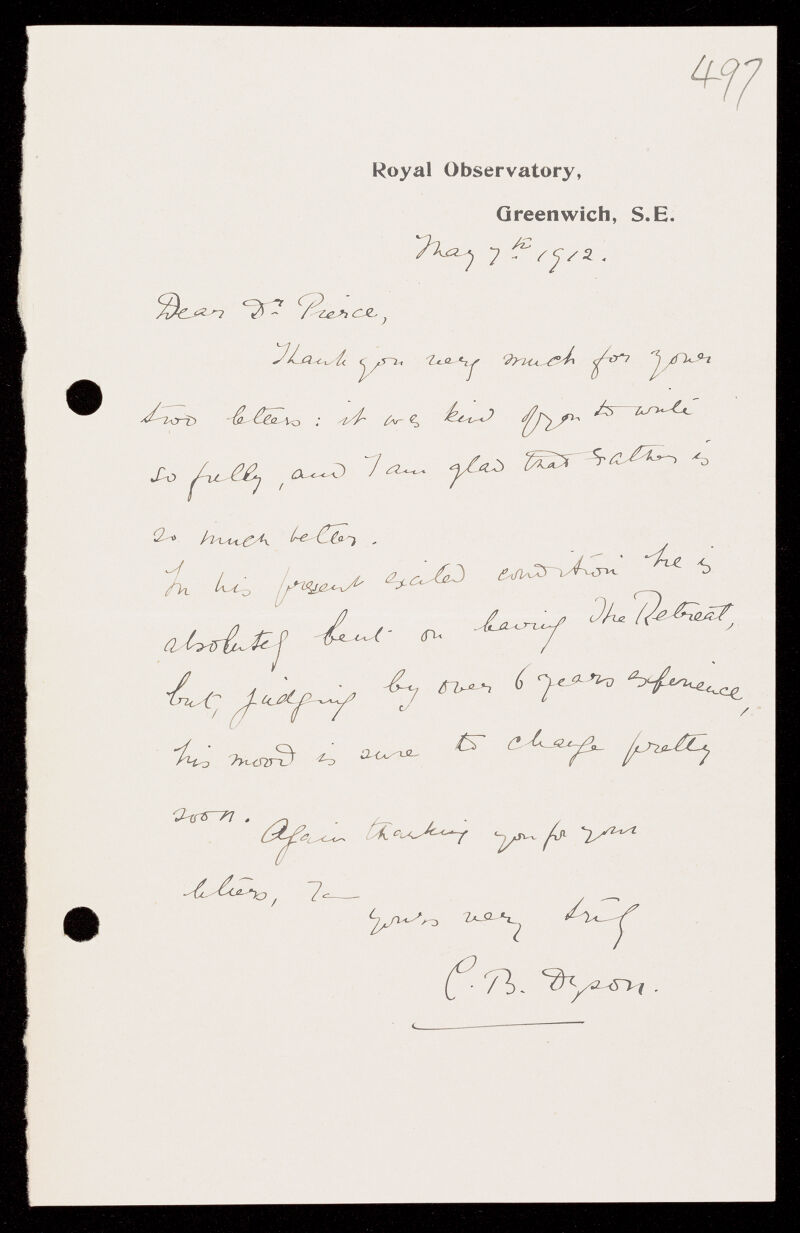 497
Royal Observatory,
Greenwich, S.E.
May 7th 1912.
Dear Dr Pierce,
Thank you very much for your
two letters: it was kind of you to write
so fully, and I am glad that Father is
so much better.
In his present excited condition he is
absolutely bent on leaving The Retreat,
but, judging by over 6 years experience,
his mood is sure to change pretty
soon.
Again thanking you for your
letters, I am
yours very truly
C. B. Dyson.